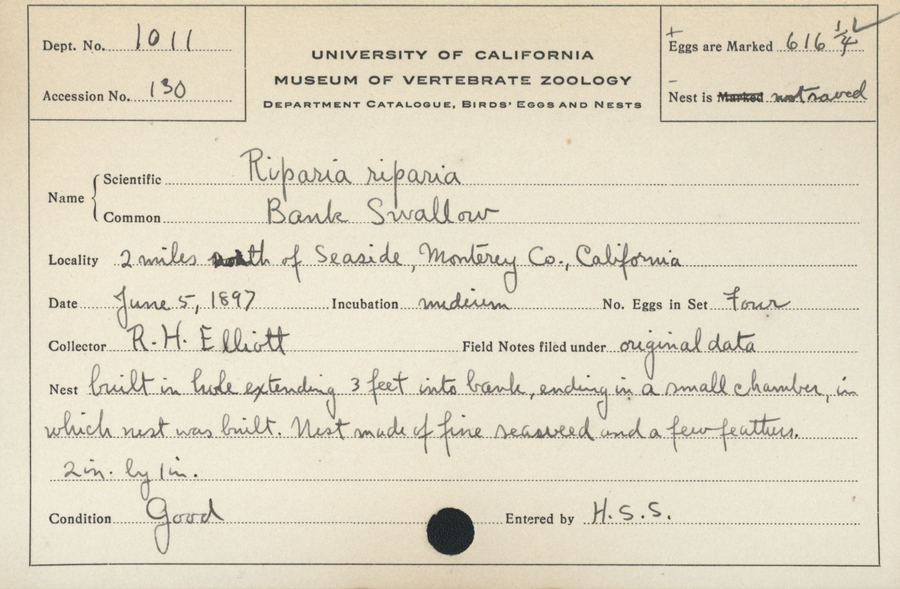 Dept. No. 1011
Accession No. 130
UNIVERSITY OF CALIFORNIA
MUSEUM OF VERTEBRATE ZOOLOGY
DEPARTMENT CATALOGUE, BIRDS' EGGS AND NESTS
Eggs are Marked 616 1/4
Nest is Marked not saved
Name
Scientific Riparia riparia
Common Bank Swallow
Locality 2 miles north of Seaside, Monterey Co., California
Date June 5, 1897 Incubation medium No. Eggs in Set Four
Collector R. H. Elliott Field Notes filed under original data
Nest built in hole extending 3 feet into bank, ending in a small chamber, in
which nest was built. Nest made of fine seaweed and a few feathers.
2 in. by 1 in.
Condition Good Entered by H.S.S.